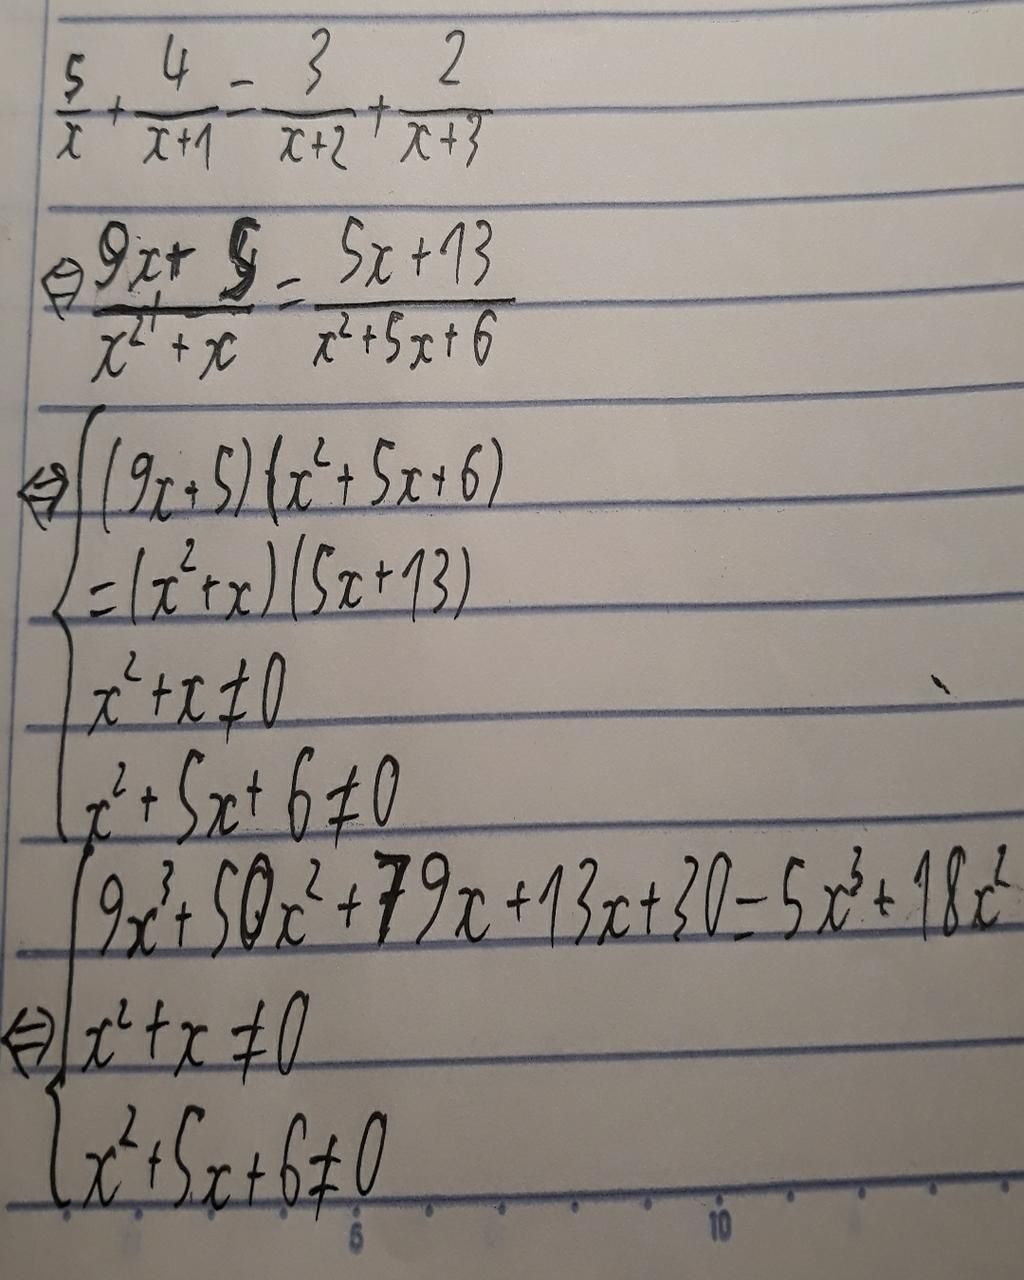 5/x + 4/(x+1) = 3/(x+2) + 2/(x+3)
⇔ (9x+5)/(x²+x) = (5x+13)/(x²+5x+6)
⇔ { (9x+5)(x²+5x+6)
= (x²+x)(5x+13)
x²+x≠0
x²+5x+6≠0
9x³+50x²+79x+13x+30=5x³+18x²
⇔ { x²+x≠0
x²+5x+6≠0
5 10